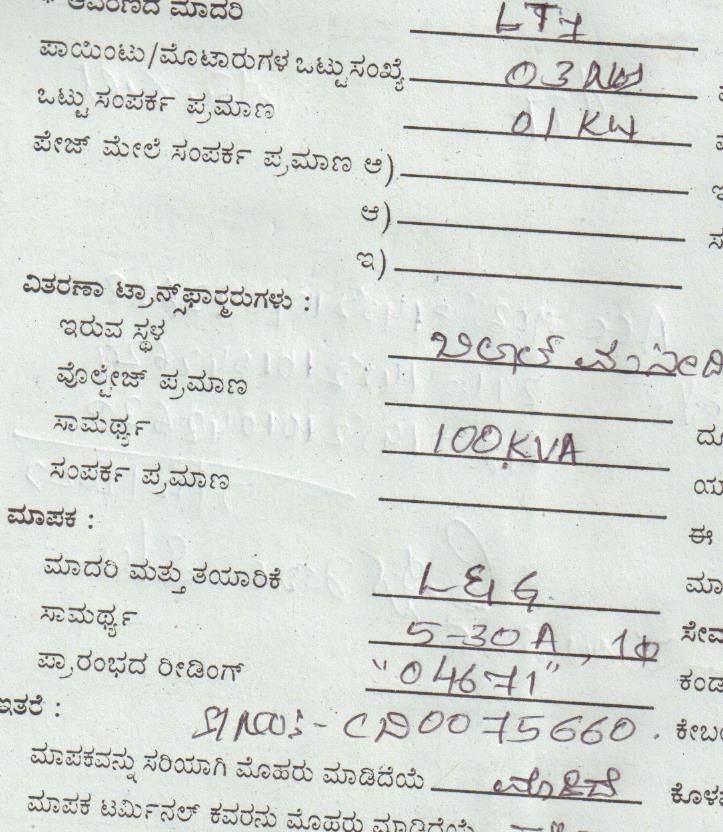 ಆವರಣದ ಮಾದರಿ LT7
ಪಾಯಿಂಟು/ಮೊಟಾರುಗಳ ಒಟ್ಟು ಸಂಖ್ಯೆ 03 Nos
ಒಟ್ಟು ಸಂಪರ್ಕ ಪ್ರಮಾಣ 01 KW
ಪೇಜ್ ಮೇಲೆ ಸಂಪರ್ಕ ಪ್ರಮಾಣ ಅ)
ಆ)
ಇ)
ವಿತರಣಾ ಟ್ರಾನ್ಸ್‌ಫಾರ್ಮರುಗಳು :
ಇರುವ ಸ್ಥಳ ಬಿಲಾಲ್ ಮಸೀದಿ
ವೊಲ್ಟೇಜ್ ಪ್ರಮಾಣ
ಸಾಮರ್ಥ್ಯ 100KVA
ಸಂಪರ್ಕ ಪ್ರಮಾಣ
ಈ
ಮಾಪಕ :
ಮಾದರಿ ಮತ್ತು ತಯಾರಿಕೆ L&G.
ಸಾಮರ್ಥ್ಯ 5-30A, 1Φ
ಪ್ರಾರಂಭದ ರೀಡಿಂಗ್ "04671"
ಇತರೆ : CD0075660.
ಮಾಪಕವನ್ನು ಸರಿಯಾಗಿ ಮೊಹರು ಮಾಡಿದೆಯೆ
ಮಾಪಕ ಟರ್ಮಿನಲ್ ಕವರನು ಮೊಹರು ಮಾಡಿದೆಯೆ